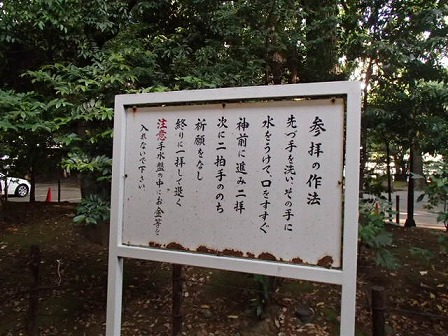 参拝の作法
先づ手を洗い、その手に
水をうけて、口をすすぐ
神前に進み二拝
次に二拍手ののち
祈願をなし
終りに一拝して退く
注意 手水盤の中にお金等を
入れないで下さい。